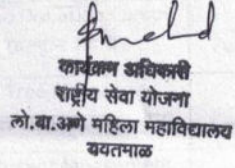 कार्यक्रम अधिकारी
राष्ट्रीय सेवा योजना
लो.बा.अणे महिला महाविद्यालय
यवतमाळ